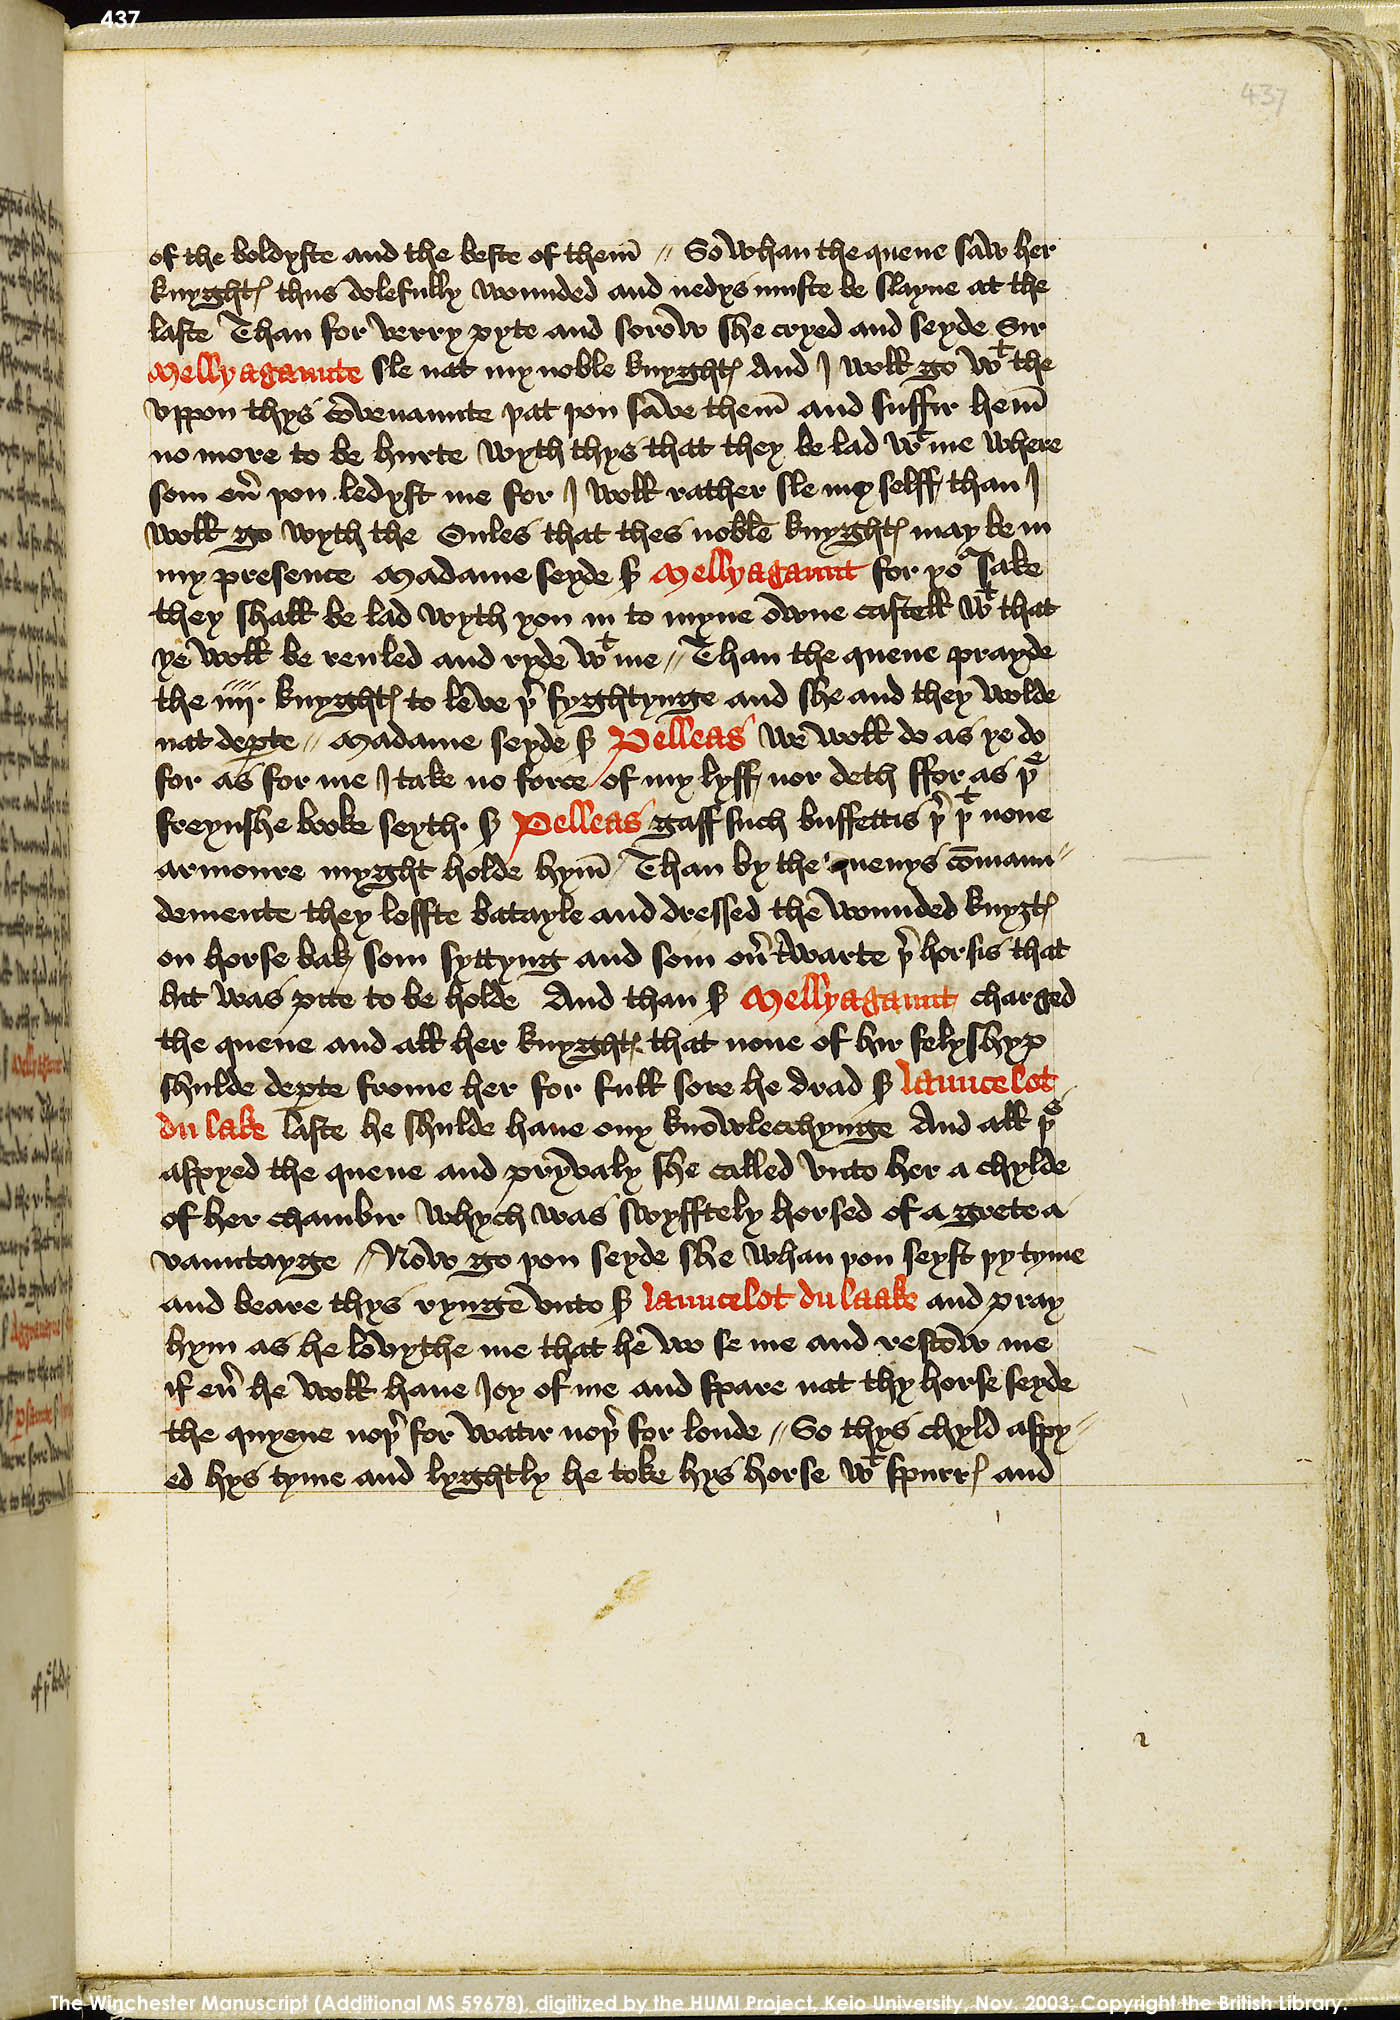 437
437
of the boldyste and the beste of them̄ // So whan the quene saw her
knyghtꝭ thus dolefully wounded and nedys muste be slayne at the
laste Than for verry pyte and sorow she cryed and seyde Sir
Mellyagaunte sle nat my noble knyghtꝭ And I woll go wᵗ the
vppon thys covenaunte þat þou save them̄ and suffir hem̄
no more to be hurte wyth thys that they be lad wᵗ me where
som eu̇ þou ledyst me for I woll rather sle my selff than I
woll go wyth the Onles that thes noble knyghtꝭ may be in
my presence Madame seyde Ꞩ Mellyagaunt for yoʳ sake
they shall be lad wyth you in to myne owne castell wᵗ that
ye woll be reuled and ryde wᵗ me // Than the quene prayde
the iiij. knyghtꝭ to leve þ̉ fyghtynge and she and they wolde
nat deꝑte // Madame seyde Ꞩ Pelleas we woll do as ye do
for as for me I take no force of my lyff nor deth ffor as þᵉ
freynshe booke seyth. Ꞩ Pelleas gaff such buffettis þ̉ þᵗ none
armoure myght holde hym̄ Than by the quenys cōmaun//
demente they leffte batayle and dressed the wounded knyȝtꝭ
on horse bak som syttyng and som ou̇twarte þ̉ horsis that
hit was pite to be holde And than Ꞩ Mellyagaunt charged
the quene and all her knyghtꝭ that none of hir felyshyp
shulde deꝑte frome her for full sore he drad Ꞩ launcelot
du lake laste he shulde haue ony knowlecchynge And all þˢ
aspyed the quene and pryvaly she called vnto her a chylde
of her chambir whych was swyfftely horsed of a grete a
vauntayge / Now go þou seyde she whan þou seyst þy tyme
and beare thys rynge vnto Ꞩ launcelot du laake and pray
hym as he lovythe me that he wo se me and rescow me
if eu̇ he woll haue Ioy of me and spare nat thy horse seyde
the quyene noþ̉ for watir noþ̉ for londe // So thys chyld aspy//
ed hys tyme and lyghtly he toke hys horse wᵗ spurrꝭ and
The Winchester Manuscript (Additional MS 59678), digitized by the HUMI Project, Keio University, Nov. 2003; Copyright the British Library.